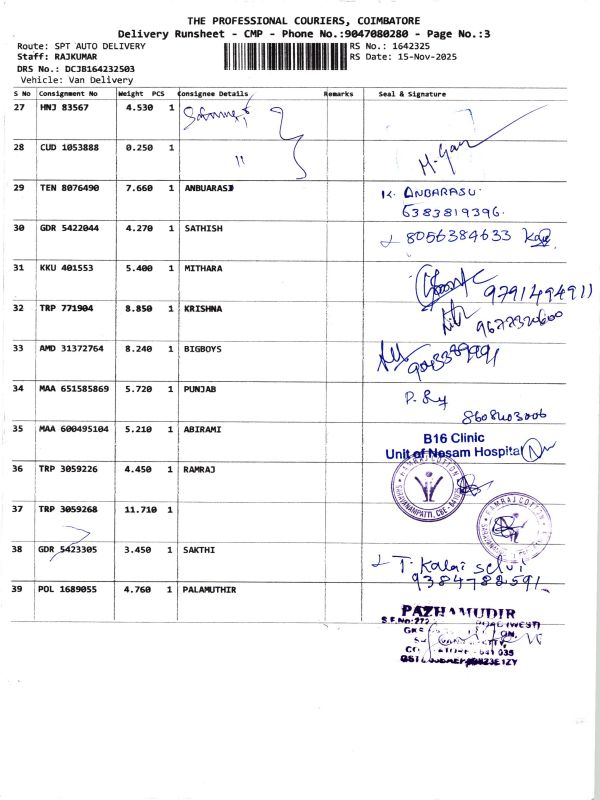 THE PROFESSIONAL COURIERS, COIMBATORE
Delivery Runsheet - CMP - Phone No.:9047080280 - Page No.:3
Route: SPT AUTO DELIVERY
RS No.: 1642325
Staff: RAJKUMAR
RS Date: 15-Nov-2025
DRS No.: DCJB164232503
Vehicle: Van Delivery
S No Consignment No Weight PCS Consignee Details Remarks Seal & Signature
27 HNJ 83567 4.530 1
28 CUD 1053888 0.250 1 "
29 TEN 8076490 7.660 1 ANBUARASI K. ANBARASU
6383819396.
30 GDR 5422044 4.270 1 SATHISH 8056384633
31 KKU 401553 5.400 1 MITHARA
9791494911
32 TRP 771904 8.850 1 KRISHNA
9677320600
33 AMD 31372764 8.240 1 BIGBOYS
34 MAA 651585869 5.720 1 PUNJAB
8608403006
35 MAA 600495104 5.210 1 ABIRAMI B16 Clinic
Unit of Nesam Hospital
36 TRP 3059226 4.450 1 RAMRAJ RAMRAJ COTTON
SARAVANAMPATTI, CBE
37 TRP 3059268 11.710 1 RAMRAJ COTTON
38 GDR 5423305 3.450 1 SAKTHI T. Kalai selvi
9384782591
39 POL 1689055 4.760 1 PALAMUTHIR PAZHAMUDIR